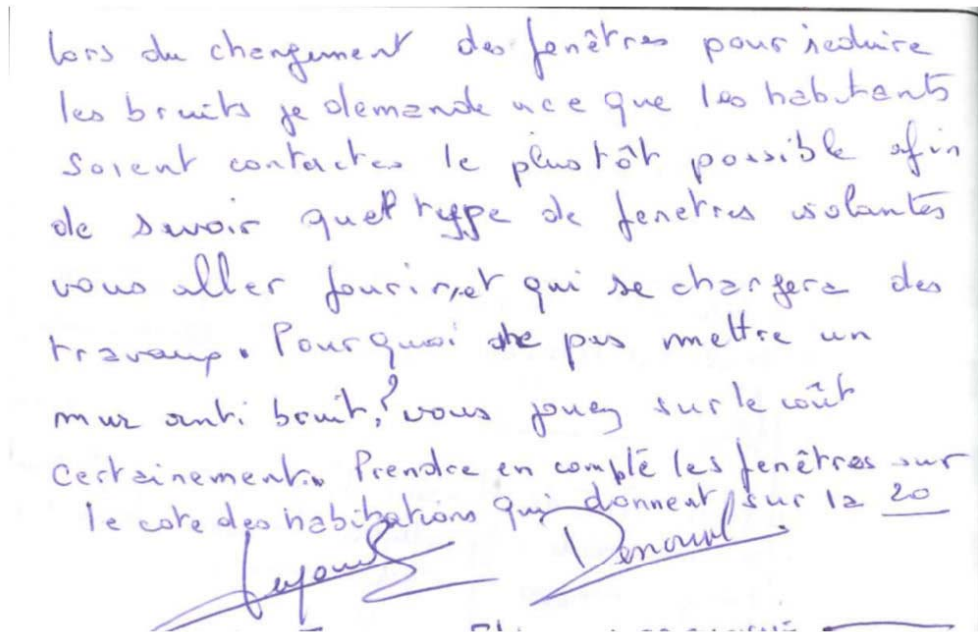 lors du changement des fenêtres pour reduire
les bruits je demande a ce que les habitants
soient contactes le plus tôt possible afin
de savoir quel type de fenetres isolantes
vous aller fourir, et qui se chargera des
travaux. Pourquoi ne pas mettre un
mur anti bruit,? vous jouez sur le coût
certainement. Prendre en compte les fenêtres sur
le cote des habitations qui donnent sur la 20